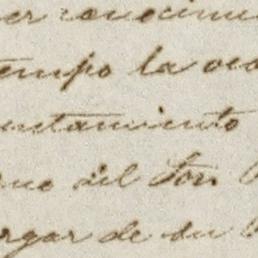 er conocimi
tempo la oca
ntamiento
del Son
rgar de su